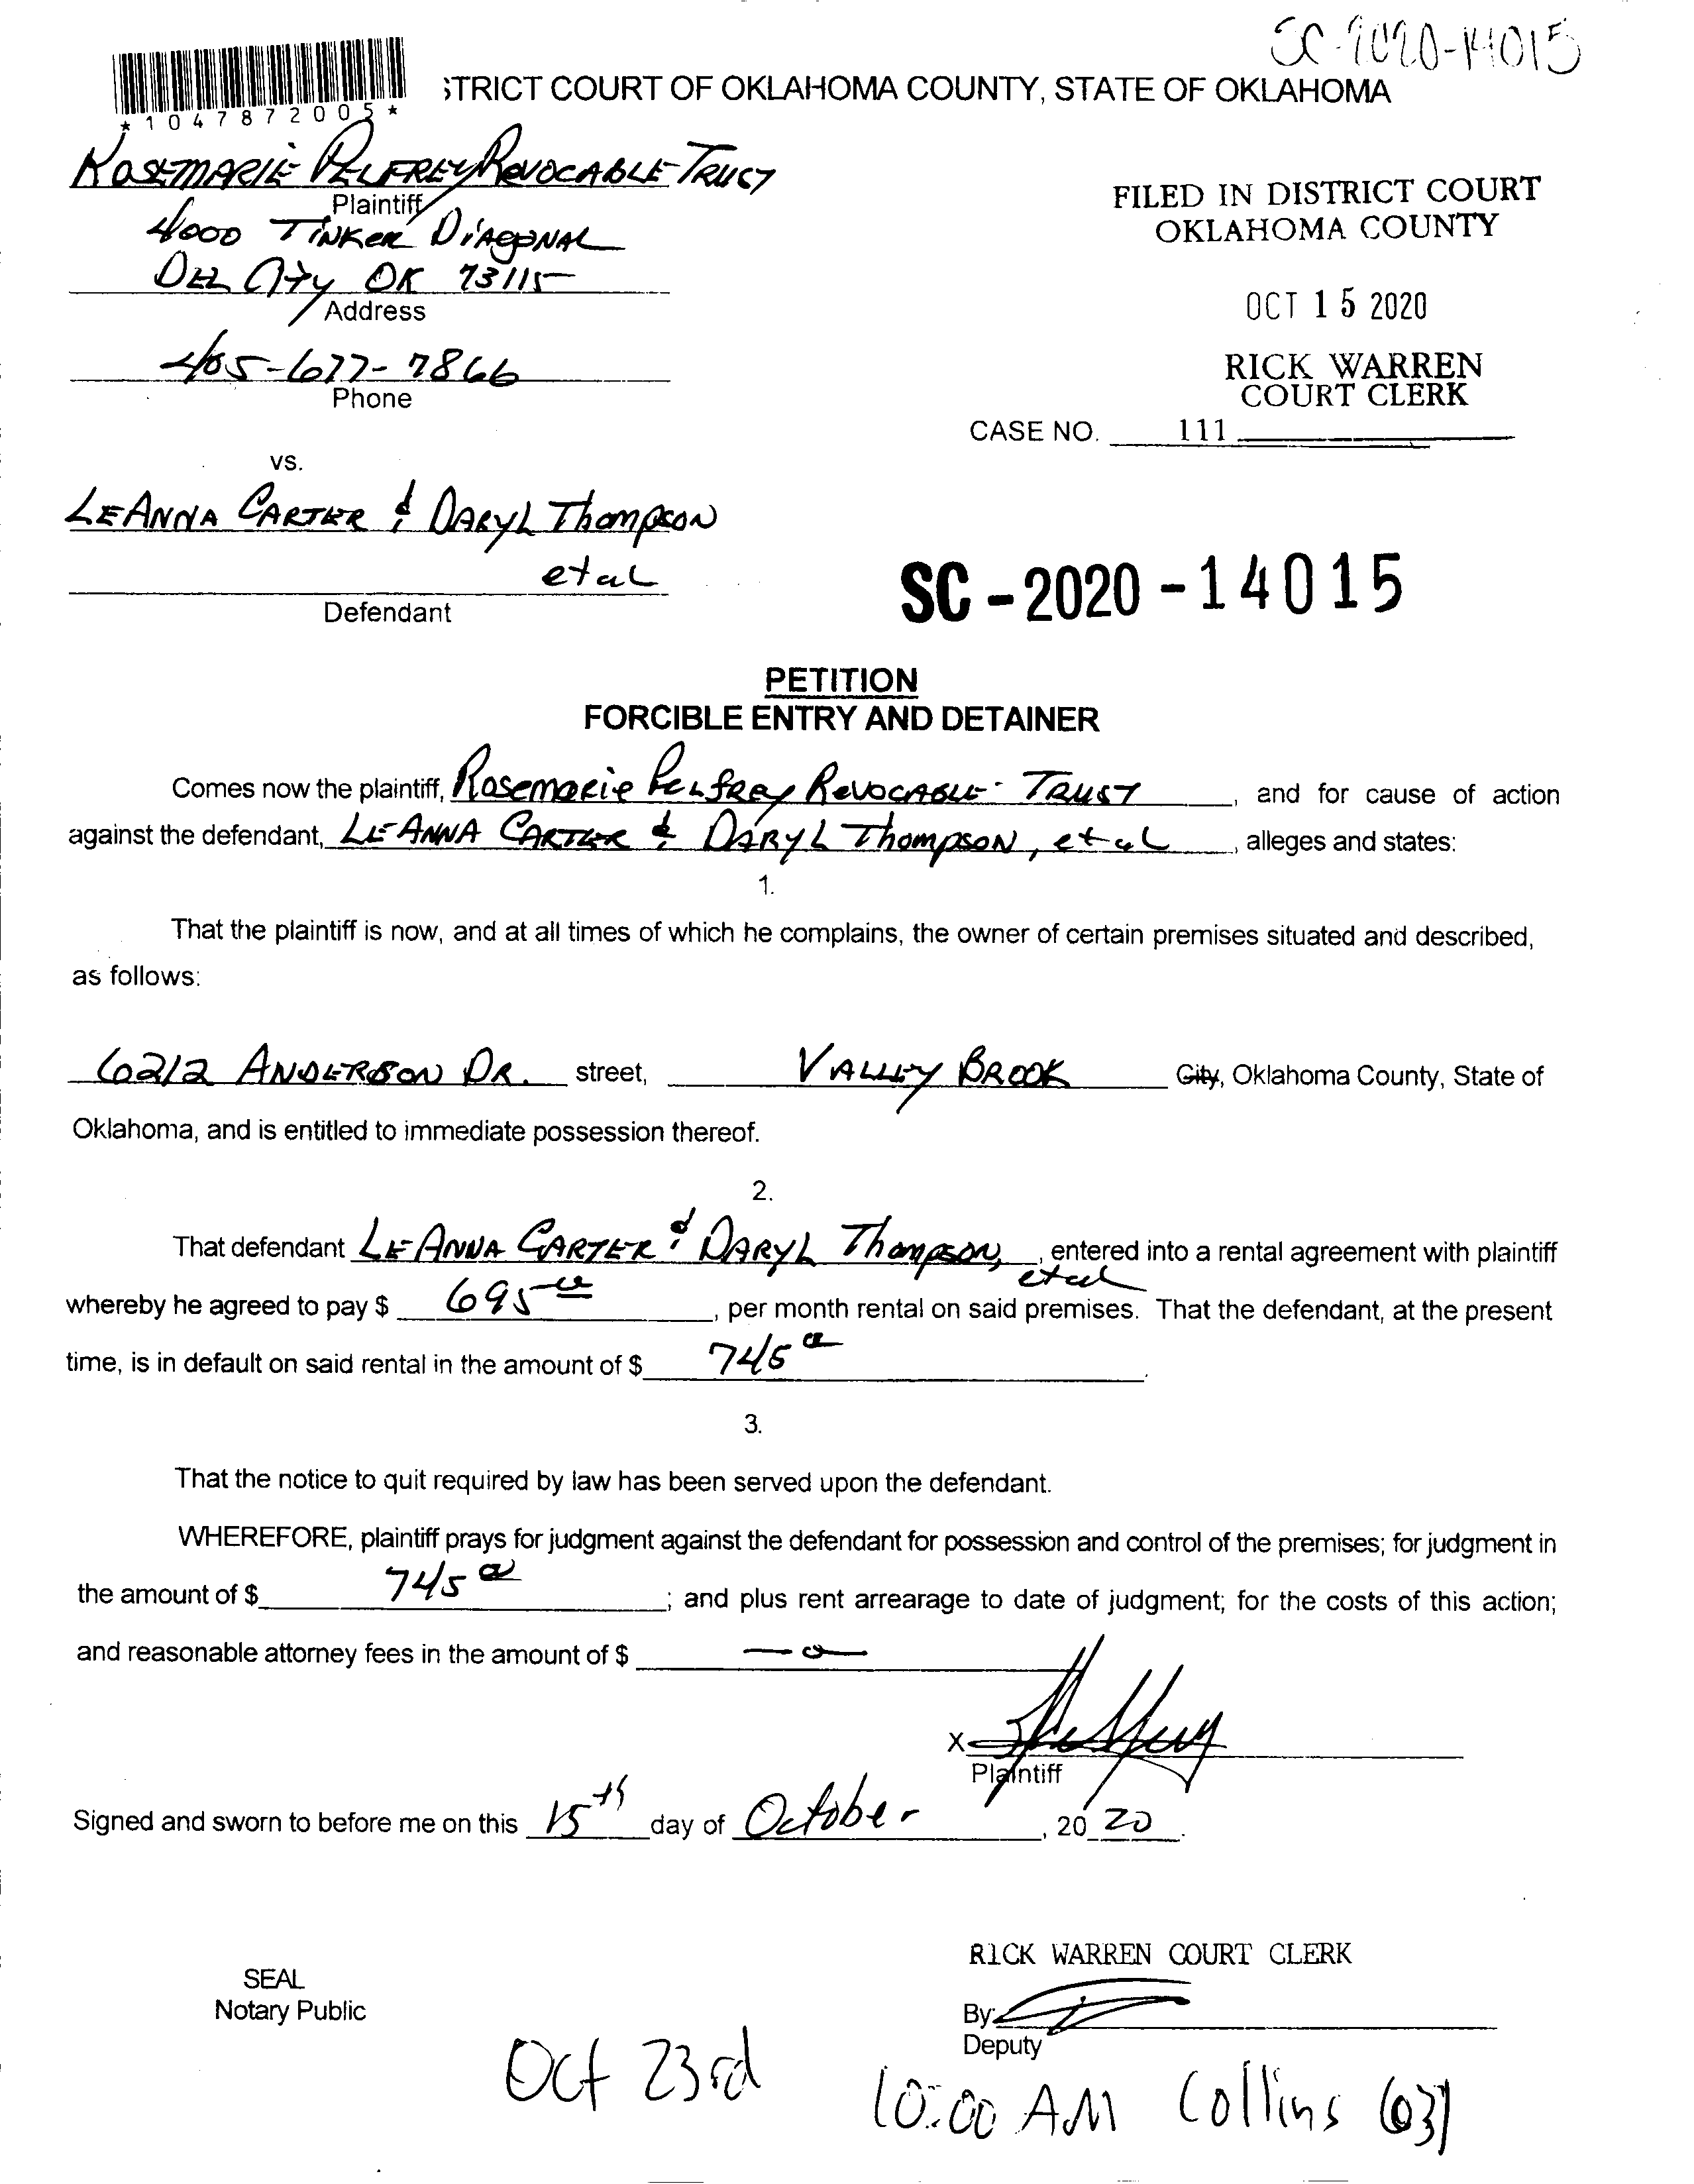 SC-2020-14015
*1047872005*
STRICT COURT OF OKLAHOMA COUNTY, STATE OF OKLAHOMA
ROSEMARIE PELFREY REVOCABLE TRUST
Plaintiff
4000 TINKER DIAGONAL
DEL CITY OK 73115
Address
405-677-7866
Phone
FILED IN DISTRICT COURT
OKLAHOMA COUNTY
OCT 15 2020
RICK WARREN
COURT CLERK
CASE NO. 111
vs.
LEANNA CARTER & DARYL THOMPSON
et al
Defendant
SC-2020-14015
PETITION
FORCIBLE ENTRY AND DETAINER
Comes now the plaintiff, Rosemarie Pelfrey Revocable Trust, and for cause of action
against the defendant, LEANNA CARTER & DARYL Thompson, et al, alleges and states:
1.
That the plaintiff is now, and at all times of which he complains, the owner of certain premises situated and described,
as follows:
6212 ANDERSON DR. street, VALLEY BROOK City, Oklahoma County, State of
Oklahoma, and is entitled to immediate possession thereof.
2.
That defendant LEANNA CARTER & DARYL Thompson, et al, entered into a rental agreement with plaintiff
whereby he agreed to pay $ 695 00, per month rental on said premises. That the defendant, at the present
time, is in default on said rental in the amount of $ 745 00.
3.
That the notice to quit required by law has been served upon the defendant.
WHEREFORE, plaintiff prays for judgment against the defendant for possession and control of the premises; for judgment in
the amount of $ 745 00; and plus rent arrearage to date of judgment; for the costs of this action;
and reasonable attorney fees in the amount of $ -0-
X
Plaintiff
Signed and sworn to before me on this 15th day of October, 2020.
RICK WARREN COURT CLERK
SEAL
Notary Public
By:
Deputy
Oct 23rd
10:00 AM Collins (03)